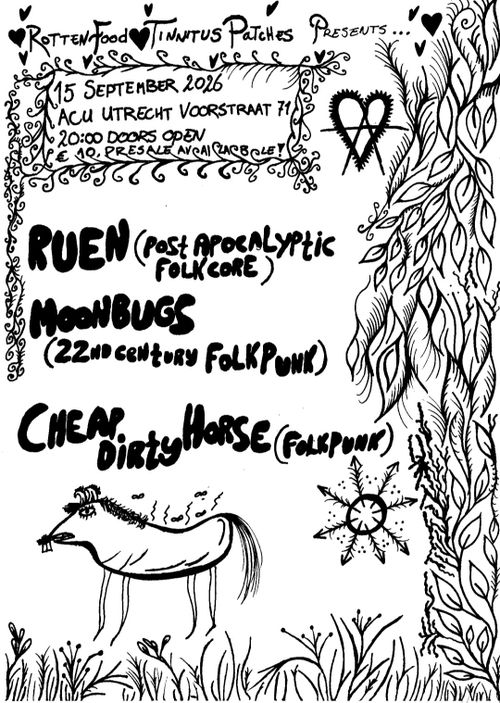 Rotten Food Tinnitus Patches Presents...
15 September 2026
ACU Utrecht Voorstraat 71
20:00 Doors open
€ 10. Presale available!
RUEN (Post Apocalyptic
Folkcore)
MOONBUGS
(22nd century Folkpunk)
Cheap
Dirty Horse (Folkpunk)